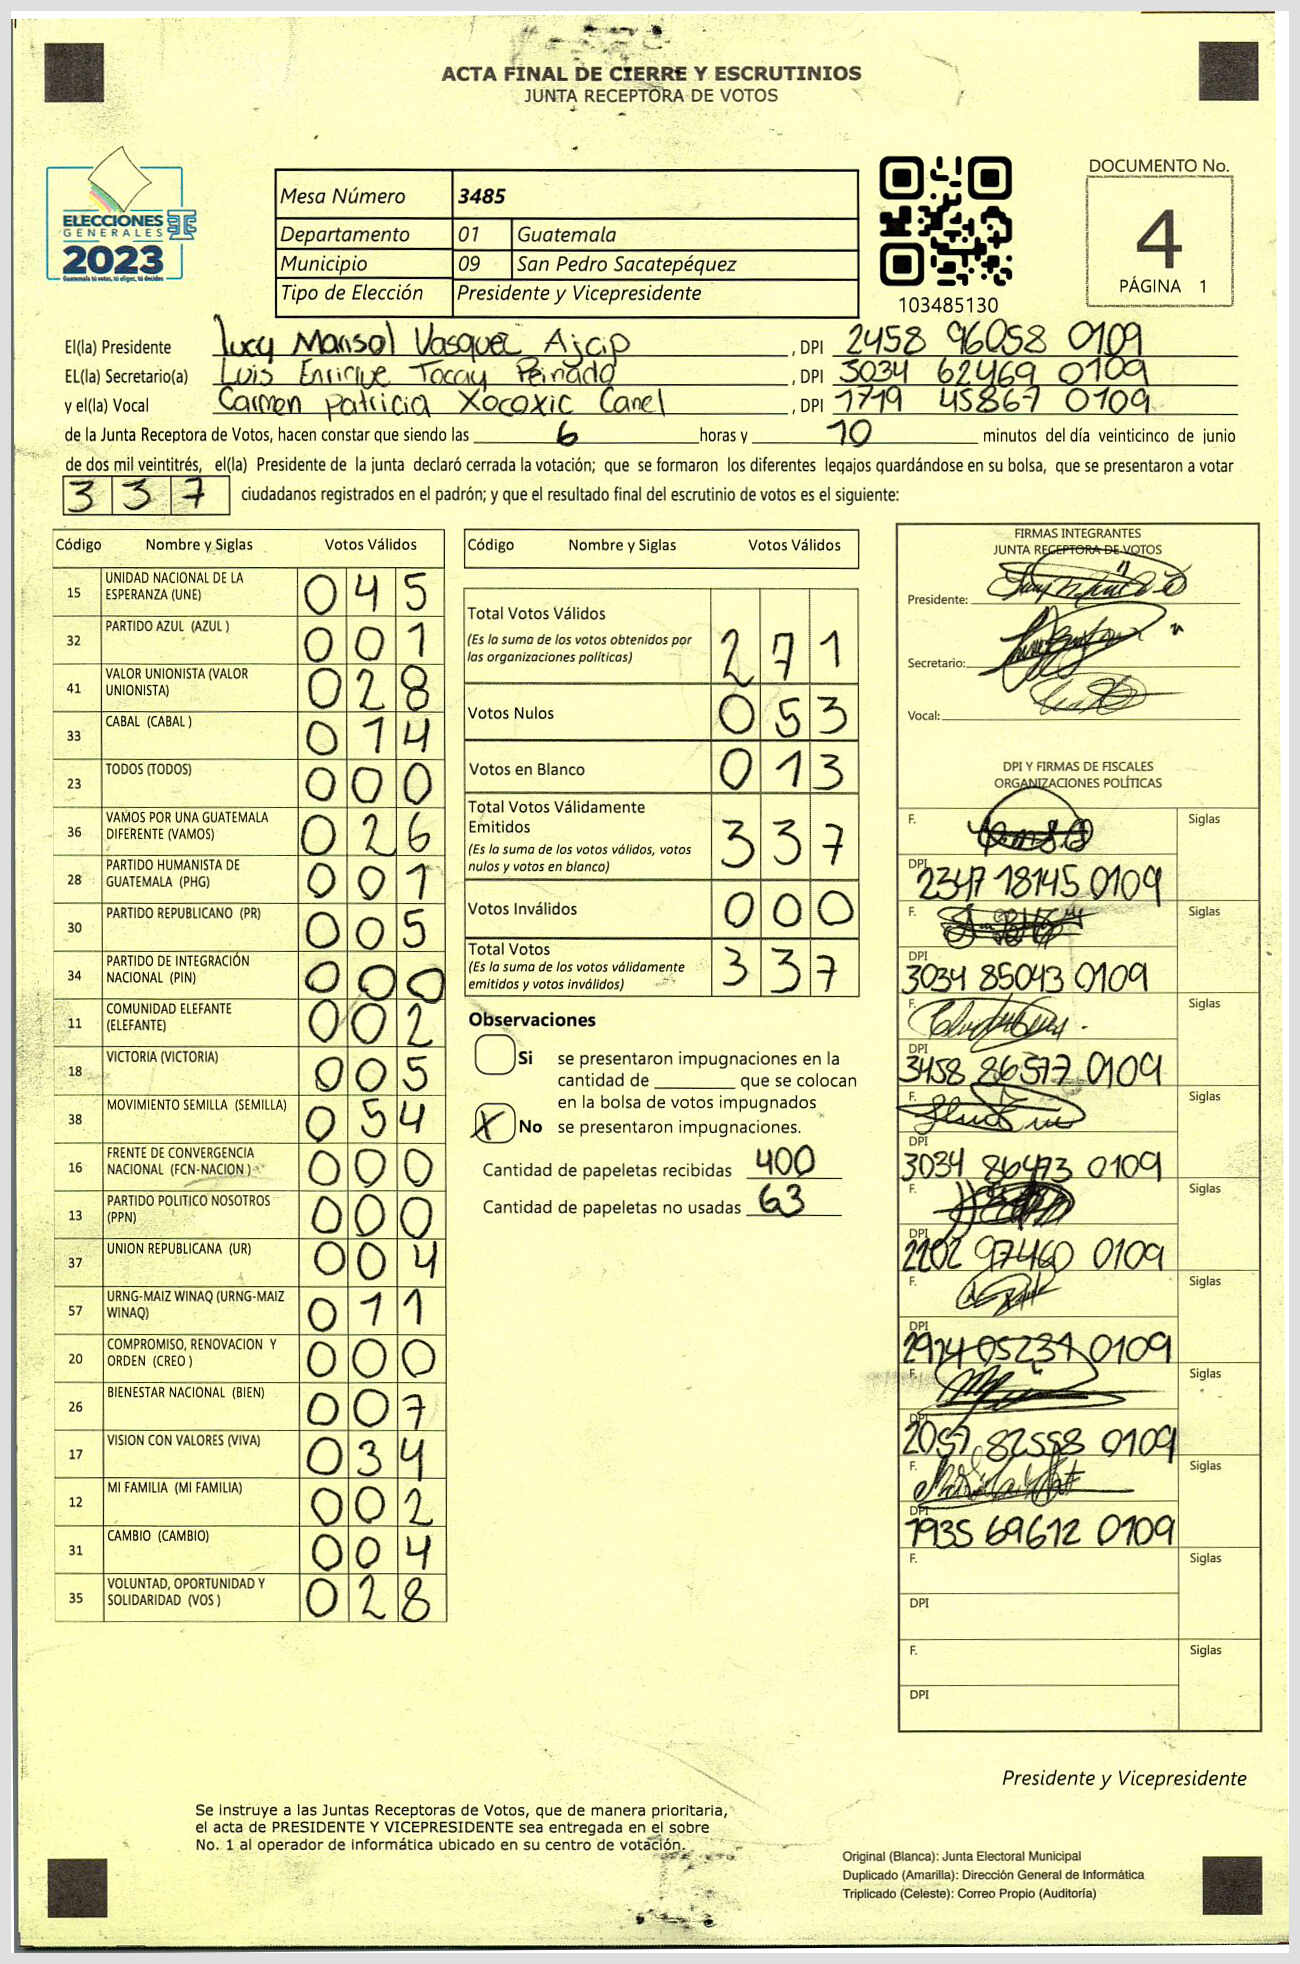 ACTA FINAL DE CIERRE Y ESCRUTINIOS
JUNTA RECEPTORA DE VOTOS
ELECCIONES
GENERALES
2023
Guatemala tú votas, tú eliges, tú decides
Mesa Número 3485
Departamento 01 Guatemala
Municipio 09 San Pedro Sacatepéquez
Tipo de Elección Presidente y Vicepresidente
103485130
DOCUMENTO No.
4
PÁGINA 1
El(la) Presidente Lucy Marisol Vasquez Ajcip , DPI 2458 96058 0109
EL(la) Secretario(a) Luis Enrique Tocay Peinado , DPI 3034 62469 0109
y el(la) Vocal Carmen Patricia Xocoxic Canel , DPI 1719 45867 0109
de la Junta Receptora de Votos, hacen constar que siendo las 6 horas y 10 minutos del día veinticinco de junio
de dos mil veintitrés, el(la) Presidente de la junta declaró cerrada la votación; que se formaron los diferentes legajos quardándose en su bolsa, que se presentaron a votar
337 ciudadanos registrados en el padrón; y que el resultado final del escrutinio de votos es el siguiente:
Código Nombre y Siglas Votos Válidos
15 UNIDAD NACIONAL DE LA ESPERANZA (UNE) 045
32 PARTIDO AZUL (AZUL ) 001
41 VALOR UNIONISTA (VALOR UNIONISTA) 028
33 CABAL (CABAL ) 014
23 TODOS (TODOS) 000
36 VAMOS POR UNA GUATEMALA DIFERENTE (VAMOS) 026
28 PARTIDO HUMANISTA DE GUATEMALA (PHG) 001
30 PARTIDO REPUBLICANO (PR) 005
34 PARTIDO DE INTEGRACIÓN NACIONAL (PIN) 000
11 COMUNIDAD ELEFANTE (ELEFANTE) 002
18 VICTORIA (VICTORIA) 005
38 MOVIMIENTO SEMILLA (SEMILLA) 054
16 FRENTE DE CONVERGENCIA NACIONAL (FCN-NACION ) 000
13 PARTIDO POLITICO NOSOTROS (PPN) 000
37 UNION REPUBLICANA (UR) 004
57 URNG-MAIZ WINAQ (URNG-MAIZ WINAQ) 011
20 COMPROMISO, RENOVACION Y ORDEN (CREO ) 000
26 BIENESTAR NACIONAL (BIEN) 007
17 VISION CON VALORES (VIVA) 034
12 MI FAMILIA (MI FAMILIA) 002
31 CAMBIO (CAMBIO) 004
35 VOLUNTAD, OPORTUNIDAD Y SOLIDARIDAD (VOS ) 028
Código Nombre y Siglas Votos Válidos
Total Votos Válidos 271
(Es la suma de los votos obtenidos por
las organizaciones políticas)
Votos Nulos 053
Votos en Blanco 013
Total Votos Válidamente
Emitidos 337
(Es la suma de los votos válidos, votos
nulos y votos en blanco)
Votos Inválidos 000
Total Votos 337
(Es la suma de los votos válidamente
emitidos y votos inválidos)
Observaciones
Si se presentaron impugnaciones en la
cantidad de ________ que se colocan
en la bolsa de votos impugnados
X No se presentaron impugnaciones.
Cantidad de papeletas recibidas 400
Cantidad de papeletas no usadas 63
FIRMAS INTEGRANTES
JUNTA RECEPTORA DE VOTOS
Presidente:
Secretario:
Vocal:
DPI Y FIRMAS DE FISCALES
ORGANIZACIONES POLÍTICAS
F. Siglas
DPI 2347 18145 0109
F. Siglas
DPI 3034 85043 0109
F. Siglas
DPI 3458 86577 0109
F. Siglas
DPI 3034 86473 0109
F. Siglas
DPI 2202 97460 0109
F. Siglas
DPI 2924 05234 0109
F. Siglas
DPI 2057 82558 0109
F. Siglas
DPI 1935 69612 0109
F. Siglas
DPI
F. Siglas
DPI
Presidente y Vicepresidente
Se instruye a las Juntas Receptoras de Votos, que de manera prioritaria,
el acta de PRESIDENTE Y VICEPRESIDENTE sea entregada en el sobre
No. 1 al operador de informática ubicado en su centro de votación.
Original (Blanca): Junta Electoral Municipal
Duplicado (Amarilla): Dirección General de Informática
Triplicado (Celeste): Correo Propio (Auditoría)